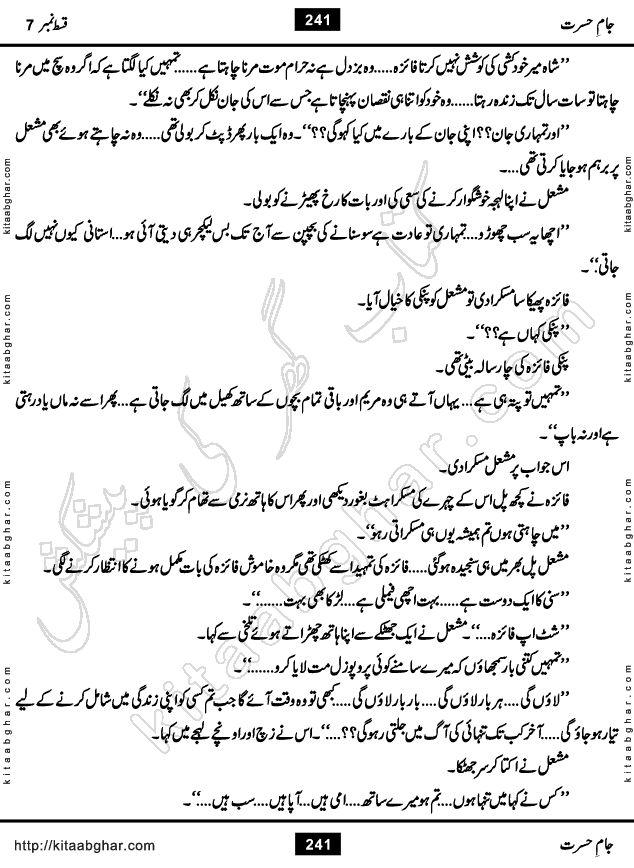 جامِ حسرت 241 قسط نمبر 7
’’شاہ میر خودکشی کی کوشش نہیں کرتا فائزہ.....وہ بزدل ہے نہ حرام موت مرنا چاہتا ہے......تمہیں کیا لگتا ہے کہ اگر وہ سچ میں مرنا
چاہتا تو سات سال تک زندہ رہتا......وہ خود کو اتنا ہی نقصان پہنچاتا ہے جس سے اس کی جان نکل کر بھی نہ نکلے‘‘۔
’’اور تمہاری جان؟؟اپنی جان کے بارے میں کیا کہو گی؟؟‘‘۔وہ ایک بار پھر ڈپٹ کر بولی تھی.....وہ نہ چاہتے ہوئے بھی مشعل
پر برہم ہو جایا کرتی تھی....۔
مشعل نے اپنا لہجہ خوشگوار کرنے کی سعی کی اور بات کا رخ پھیرنے کو بولی۔
’’اچھا یہ سب چھوڑو....تمہاری تو عادت ہے سو سنانے کی بچپن سے آج تک بس لیکچر ہی دیتی آئی ہو...استانی کیوں نہیں لگ
جاتی‘‘۔
فائزہ پھیکا سا مسکرا دی تو مشعل کو پنکی کا خیال آیا۔
’’پنکی کہاں ہے؟؟‘‘۔
پنکی فائزہ کی چار سالہ بیٹی تھی۔
’’تمہیں تو پتہ ہی ہے...یہاں آتے ہی وہ مریم اور باقی تمام بچوں کے ساتھ کھیل میں لگ جاتی ہے...پھر اسے نہ ماں یاد رہتی
ہے اور نہ باپ‘‘۔
اس جواب پر مشعل مسکرا دی۔
فائزہ نے کچھ پل اس کے چہرے کی مسکراہٹ بغور دیکھی اور پھر اس کا ہاتھ نرمی سے تھام کر گویا ہوئی۔
’’میں چاہتی ہوں تم ہمیشہ یوں ہی مسکراتی رہو‘‘۔
مشعل پل بھر میں ہی سنجیدہ ہو گئی.....فائزہ کی تمہید اسے کھٹکی تھی مگر وہ خاموش فائزہ کی بات مکمل ہونے کا انتظار کرنے لگی۔
’’سنی کا ایک دوست ہے.....بہت اچھی فیملی ہے....لڑکا بھی بہت.......‘‘۔
’’شٹ اپ فائزہ....‘‘۔مشعل نے ایک جھٹکے سے اپنا ہاتھ چھڑاتے ہوئے تلخی سے کہا۔
’’تمہیں کتنی بار سمجھاؤں کہ میرے سامنے کوئی پروپوزل مت لایا کرو.......‘‘۔
’’لاؤں گی....ہر بار لاؤں گی.....بار بار لاؤں گی.....کبھی تو وہ وقت آئے گا جب تم کسی کو اپنی زندگی میں شامل کرنے کے لیے
تیار ہو جاؤ گی.....آخر کب تک تنہائی کی آگ میں جلتی رہو گی؟؟...‘‘۔اس نے زچ اور اونچے لہجے میں کہا۔
مشعل نے اکتا کر سر جھٹکا۔
’’کس نے کہا میں تنہا ہوں...تم ہو میرے ساتھ....امی ہیں...آپا ہیں....سب ہیں....‘‘۔
http://kitaabghar.com 241 جامِ حسرت
kitaabghar.com
kitaabghar.com
kitaabghar.com
kitaabghar.com
kitaabghar.com
kitaabghar.com
kitaabghar.com
kitaabghar.com
کتاب گھر کی پیشکش
kitaabghar.com